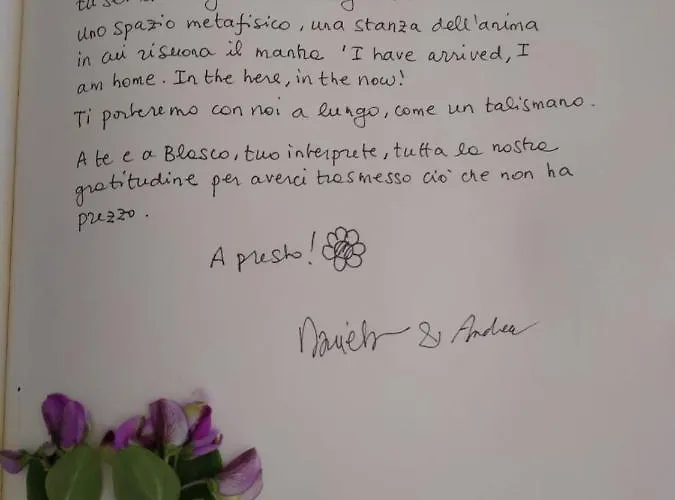 uno spazio metafisico, una stanza dell'anima
in cui risuona il mantra 'I have arrived, I
am home. In the here, in the now!
Ti porteremo con noi a lungo, come un talismano.
A te e a Blasco, tuo interprete, tutta la nostra
gratitudine per averci trasmesso ciò che non ha
prezzo.
A presto!
& Andrea